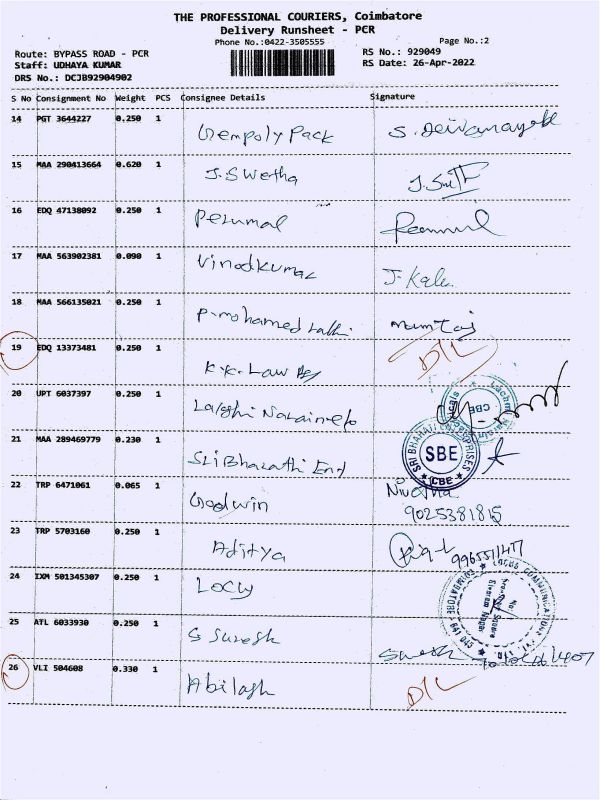 THE PROFESSIONAL COURIERS, Coimbatore
Delivery Runsheet - PCR
Phone No.:0422-3505555
Page No.:2
Route: BYPASS ROAD - PCR
RS No.: 929049
Staff: UDHAYA KUMAR
RS Date: 26-Apr-2022
DRS No.: DCJB92904902
S No Consignment No Weight PCS Consignee Details Signature
14 PGT 3644227 0.250 1 Gempoly Pack S. Deivanayaki
15 MAA 290413664 0.620 1 J. Swetha
16 EDQ 47138092 0.250 1 Perumal
17 MAA 563902381 0.090 1 Vinodkumar J. Kala
18 MAA 566135021 0.250 1 P. mohamed mumtaj
19 EDQ 13373481 0.250 1 K.K. Law D/L
20 UPT 6037397 0.250 1
CBE
21 MAA 289469779 0.230 1 Sri Bharathi Ent
SRI BHARATHI ENTERPRISES
SBE
CBE
22 TRP 6471061 0.065 1 Godwin Nivetha
9025381815
23 TRP 5703160 0.250 1 Aditya
24 IXM 501345307 0.250 1
LOCUS COMMUNICATIONS
COIMBATORE 641 045
Sivaram Nagar
25 ATL 6033930 0.250 1 S Suresh Suresh
26 VLI 504608 0.330 1 Abilash D/L